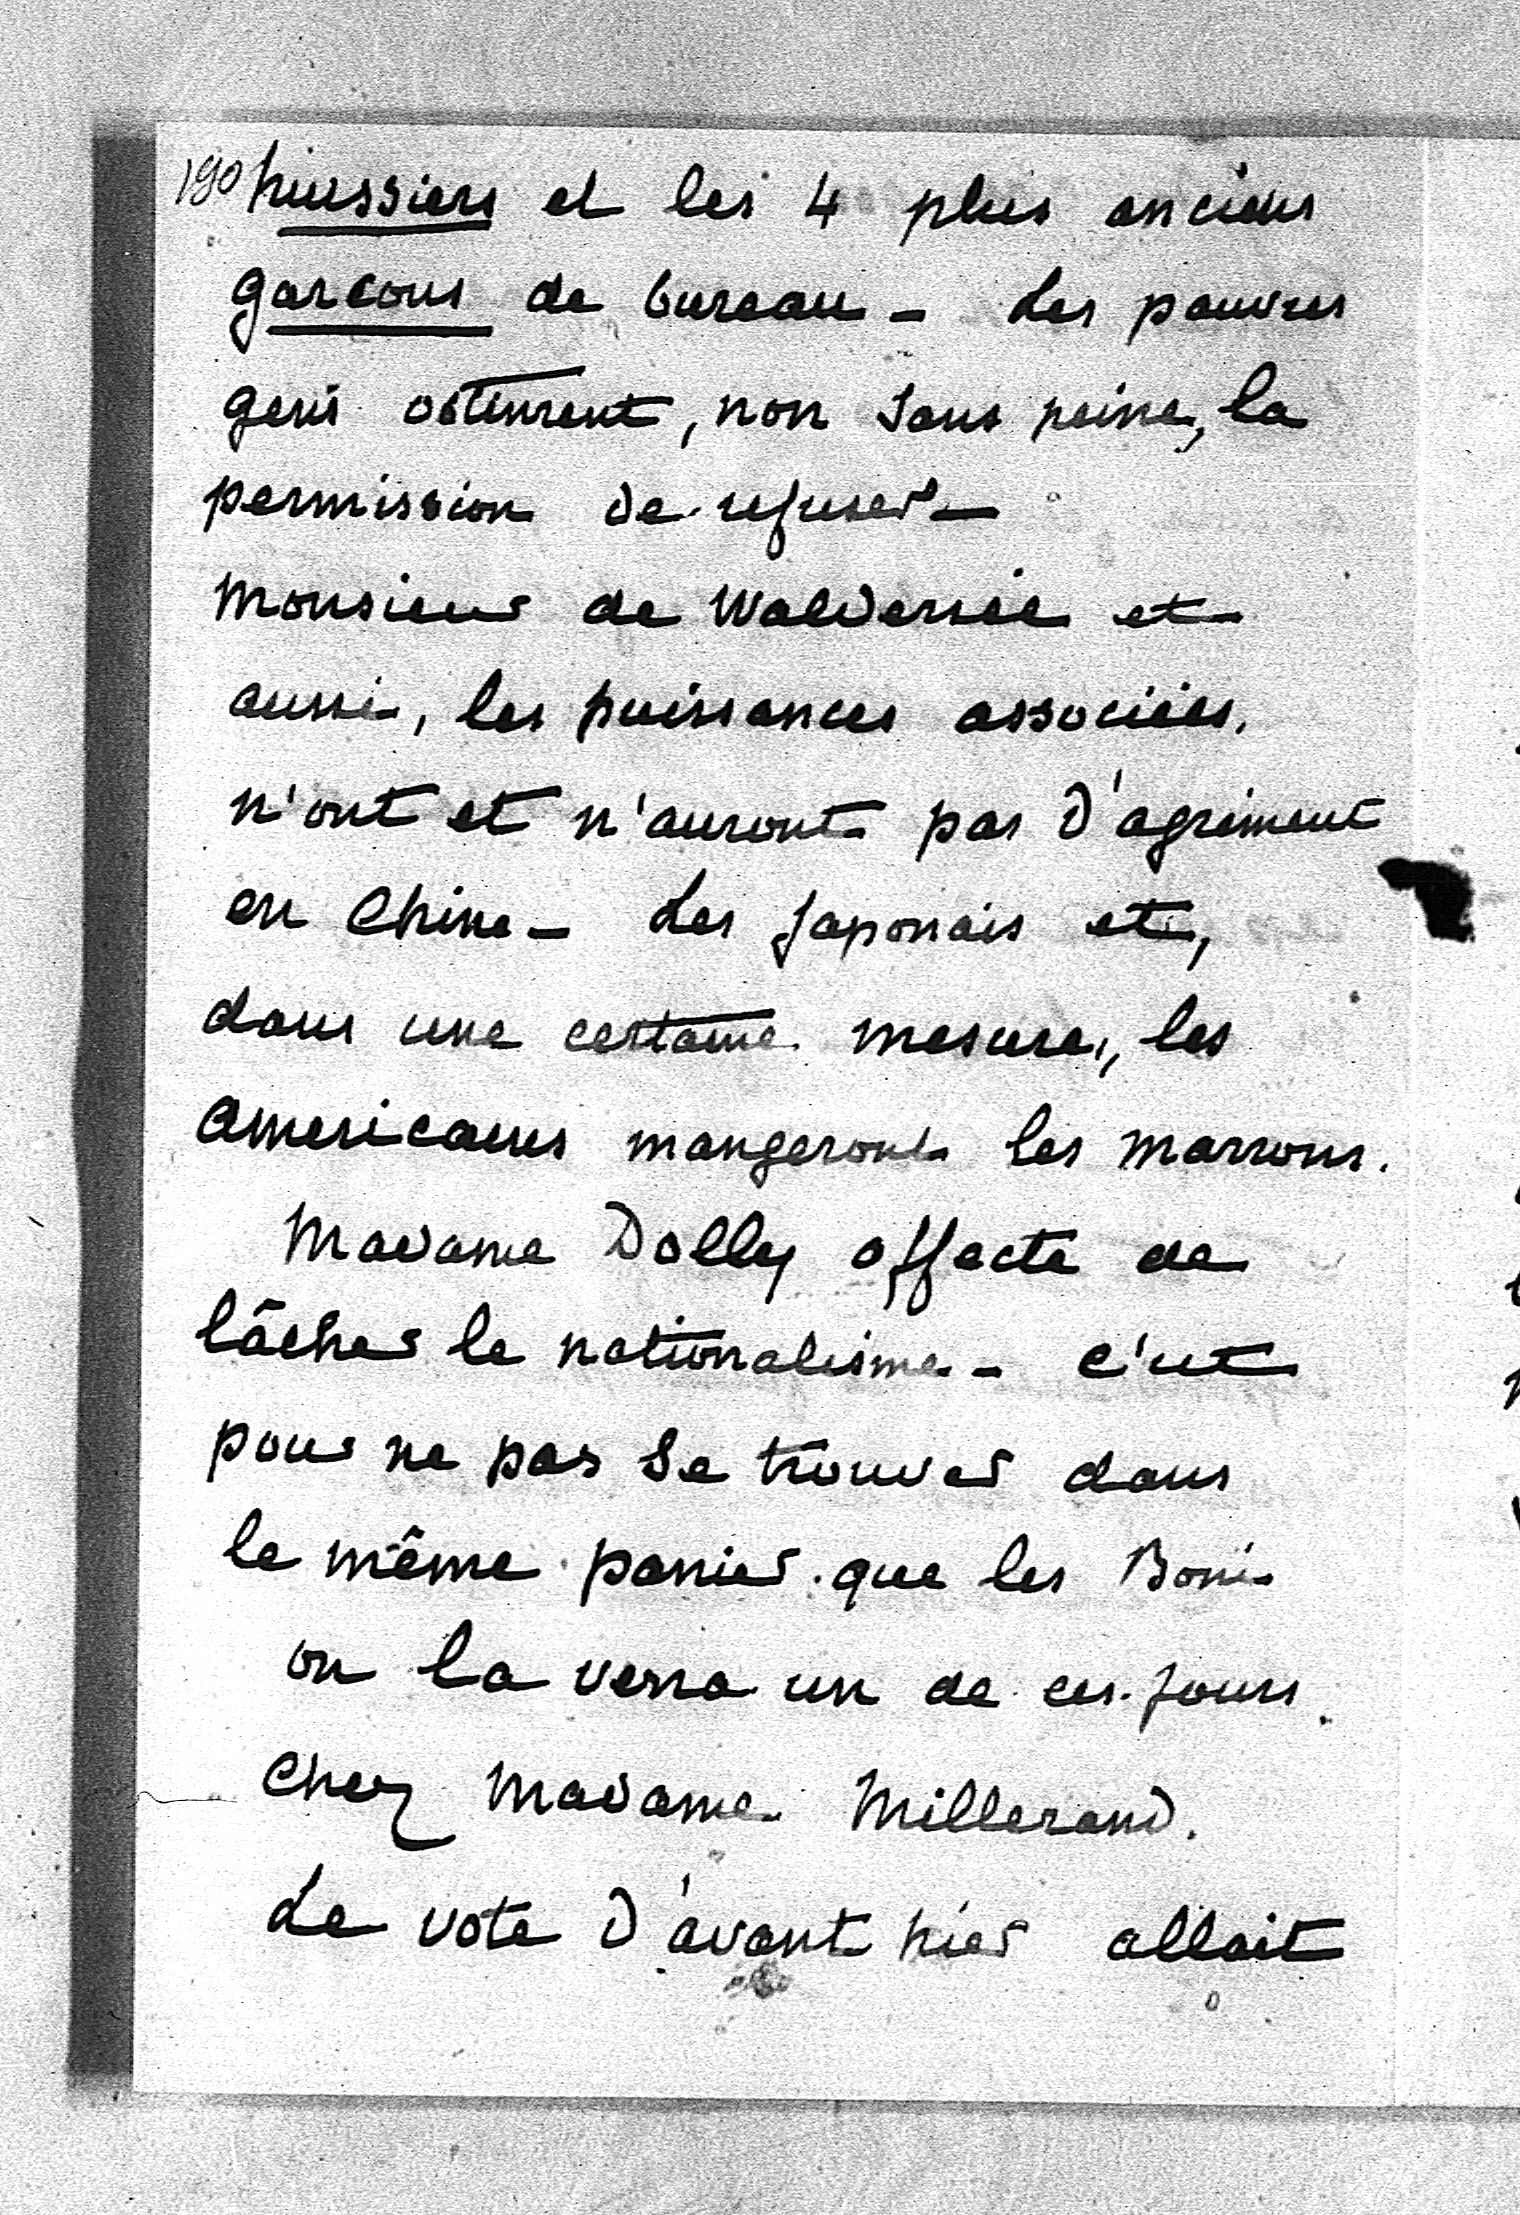 190 huissiers et les 4 plus anciens
garcons de bureau - Les pauvres
gens obtinrent, non sans peine, la
permission de refuser -
Monsieur de Waldersée et
aussi, les puissances associées,
n'ont et n'auront pas d'agrément
en Chine - Les Japonais et,
dans une certaine mesure, les
americains mangeront les marrons.
Madame Dolly affecte de
lâcher le nationalisme - c'est
pour ne pas se trouver dans
le même panier que les Boni
on la verra un de ces jours
chez Madame Millerand.
Le vote d'avant hier allait